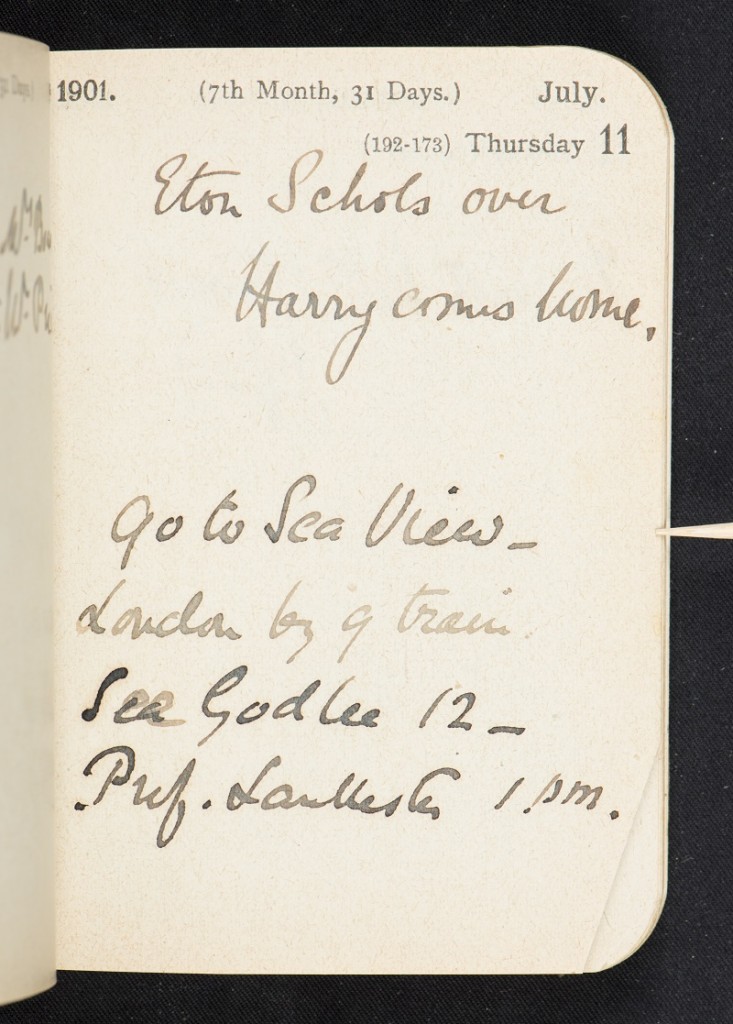 1901. (7th Month, 31 Days.) July.
(192-173) Thursday 11
Eton Schols over
Harry comes home.
Go to Sea View -
London by 9 train
See Godlee 12 -
Prof. Lankester 1 pm.